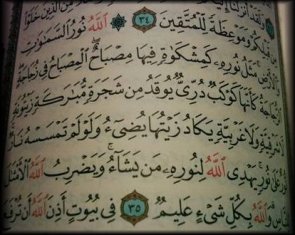 قَبْلِكُمْ وَمَوْعِظَةً لِّلْمُتَّقِينَ ٣٤ ۞ ٱللَّهُ نُورُ ٱلسَّمَٰوَٰتِ
وَٱلْأَرْضِ مَثَلُ نُورِهِۦ كَمِشْكَوٰةٍ فِيهَا مِصْبَاحٌ ٱلْمِصْبَاحُ فِى زُجَاجَةٍ
ٱلزُّجَاجَةُ كَأَنَّهَا كَوْكَبٌ دُرِّىٌّ يُوقَدُ مِن شَجَرَةٍ مُّبَٰرَكَةٍ زَيْتُونَةٍ
شَرْقِيَّةٍ وَلَا غَرْبِيَّةٍ يَكَادُ زَيْتُهَا يُضِىٓءُ وَلَوْ لَمْ تَمْسَسْهُ نَارٌ
نُّورٌ عَلَىٰ نُورٍ يَهْدِى ٱللَّهُ لِنُورِهِۦ مَن يَشَآءُ وَيَضْرِبُ ٱللَّهُ ٱلْأَمْثَٰلَ
لِلنَّاسِ وَٱللَّهُ بِكُلِّ شَىْءٍ عَلِيمٌ ٣٥ فِى بُيُوتٍ أَذِنَ ٱللَّهُ أَن تُرْفَعَ